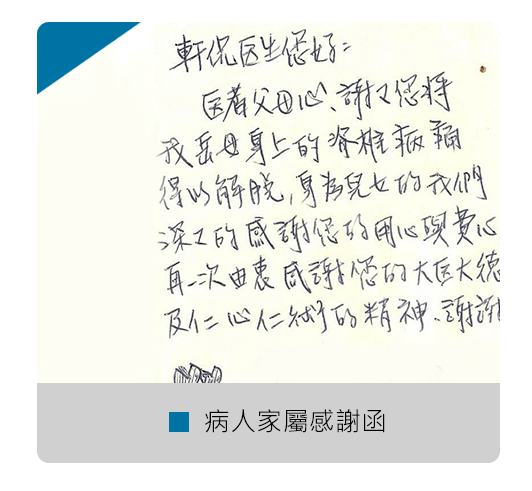 軒侃医生您好:
医者父母心、謝々您将
我岳母身上的脊椎病痛
得以解脫,身為兒女的我們
深々的感謝您的用心與費心
再一次由衷感謝您的大医大德
及仁心仁術的精神、謝謝
病人家屬感謝函